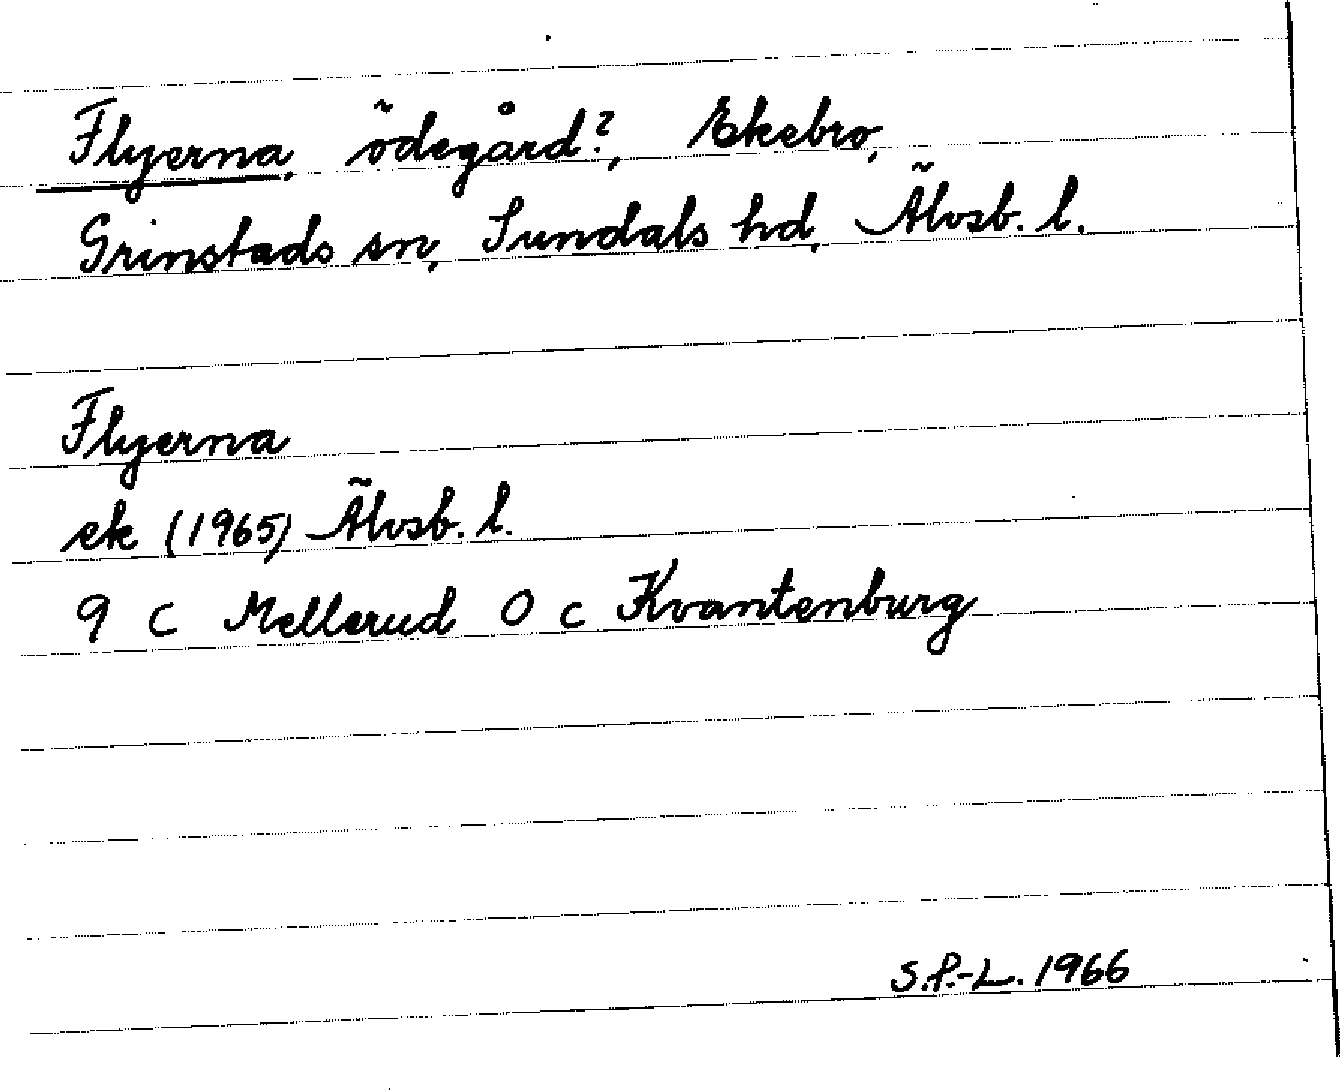 Flyerna, ödegård?, Ekebro,
Grinstads sn, Sundals hd, Älvsb. l.
Flyerna
ek (1965) Älvsb. l.
9 C Mellerud O c Kvantenburg
S.F.-L. 1966